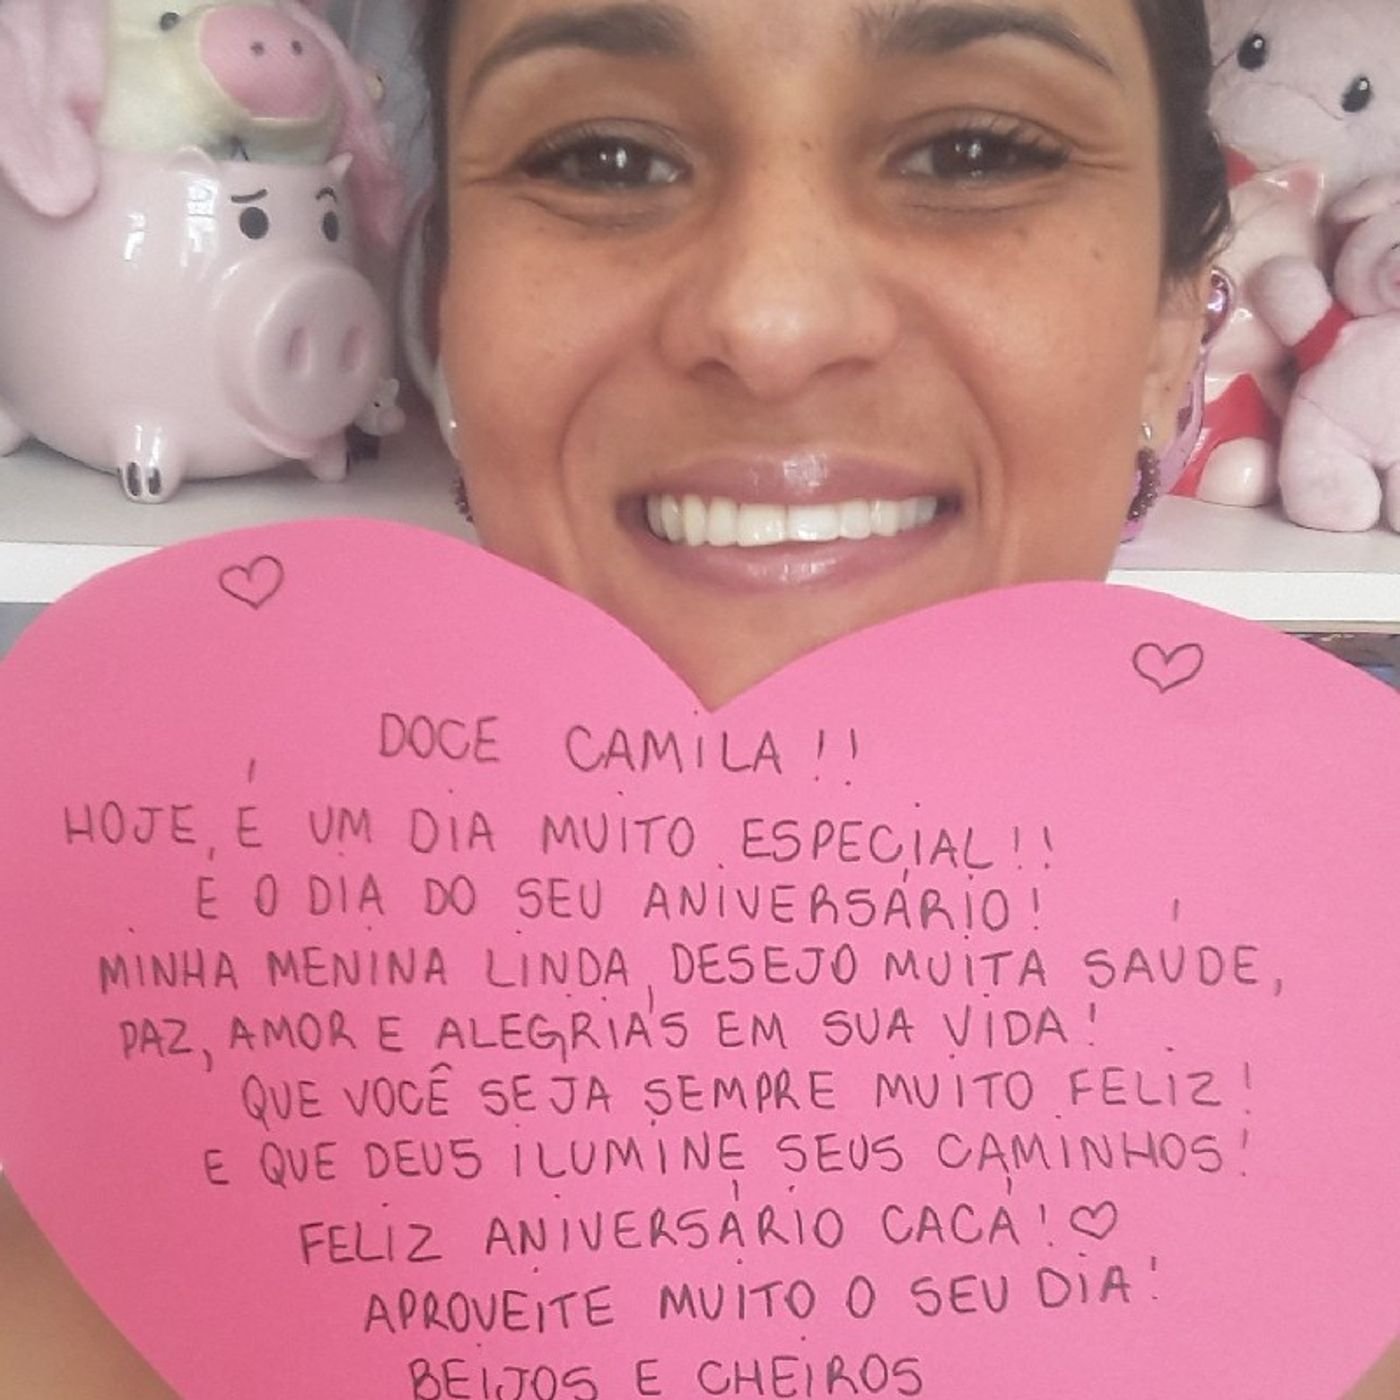 DOCE CAMILA!!
HOJE, É UM DIA MUITO ESPECIAL!!
É O DIA DO SEU ANIVERSÁRIO!
MINHA MENINA LINDA, DESEJO MUITA SAÚDE,
PAZ, AMOR E ALEGRIA'S EM SUA VIDA!
QUE VOCÊ SEJA SEMPRE MUITO FELIZ!
E QUE DEUS ILUMINE SEUS CAMINHOS!
FELIZ ANIVERSÁRIO CACÁ!♡
APROVEITE MUITO O SEU DIA!
BEIJOS E CHEIROS